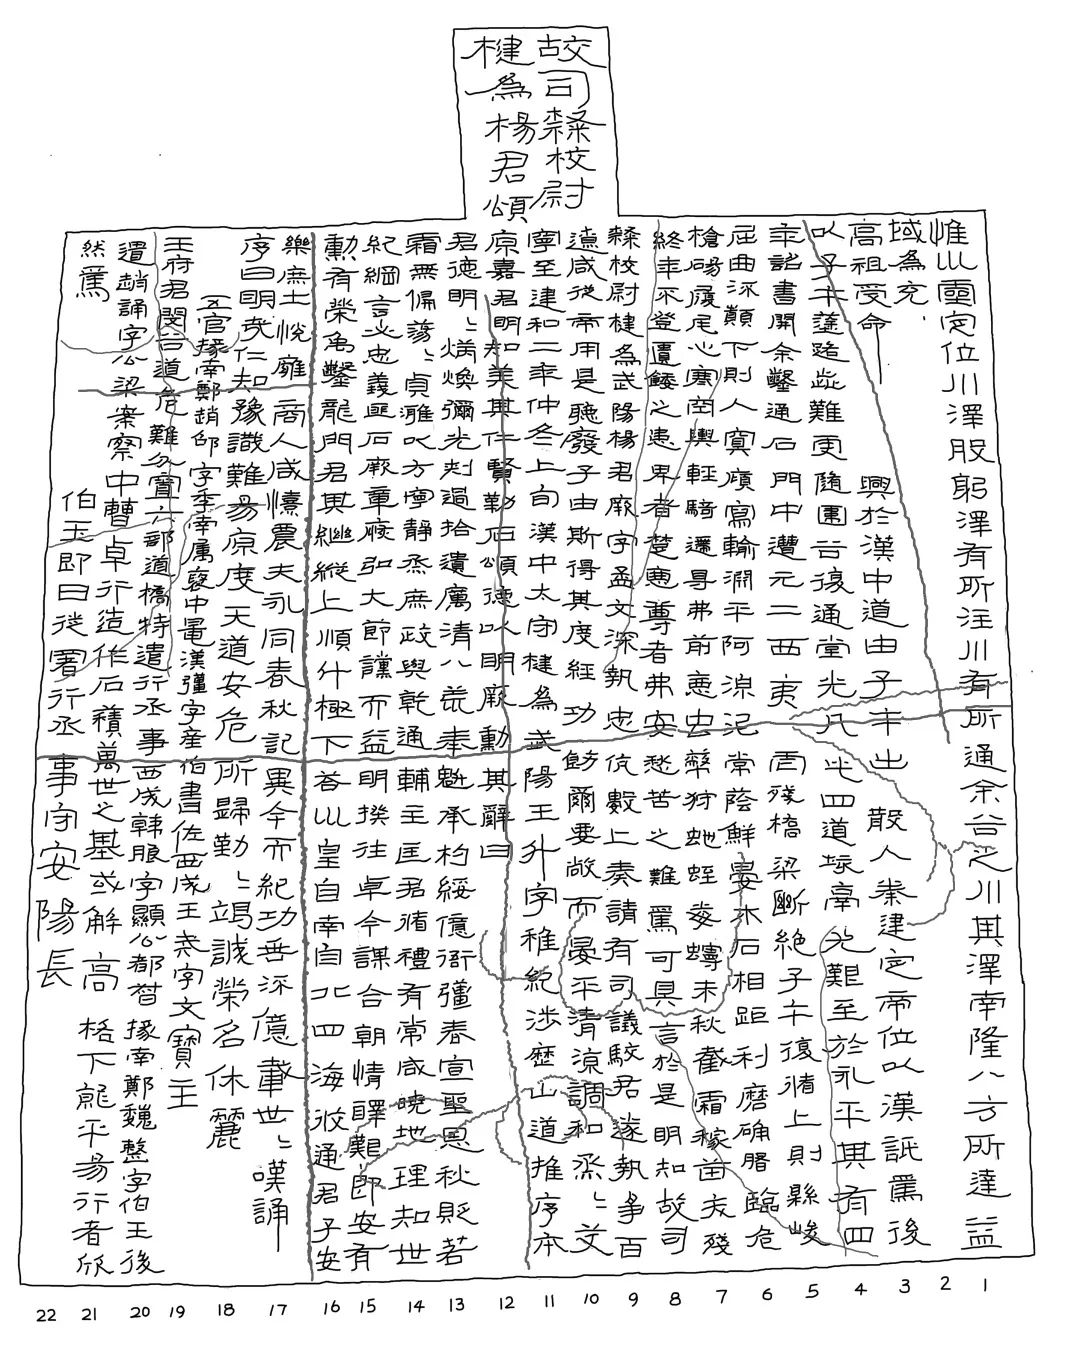 故司隸校尉
楗為楊君頌
惟巛靈定位川澤股躬澤有所注川有所通余谷之川其澤南隆八方所達益
域為充
高祖受命興於漢中道由子午出散入秦建定帝位以漢詆焉後
以子午塗路歰難更隨圍谷復通堂光凡此四道垓鬲尤艱至於永平其有四
年詔書開余鑿通石門中遭元二西夷虐殘橋梁斷絕子午復循上則縣峻
屈曲流顛下則入冥廎寫輸淵平阿淖泥常蔭鮮晏木石相距利磨确磐臨危
槍碭履尾心寒空輿輕騎遰㝵弗前惡虫𢑥狩虵蛭毒蟃未秋截霜稼苗夭殘
終年不登匱餧之患卑者楚惡尊者弗安愁苦之難焉可具言於是明知故司
隸校尉楗為武陽楊君厥字孟文深執忠伉數上奏請有司議駮君遂執爭百
遼咸從帝用是聽廢子由斯得其度經功飭爾要敞而晏平清涼調和烝〻艾
寧至建和二年仲冬上旬漢中大守楗為武陽王升字稚紀涉歷山道推序本
原嘉君明知美其仁賢勒石頌德以明厥勳其辭曰
君德明〻炳煥彌光刺過拾遺厲清八荒奉魁承杓綏億衙彊春宣聖恩秋貶若
霜無偏蕩〻貞雅以方寧靜烝庶政與乾通輔主匡君循禮有常咸曉地理知世
紀綱言必忠義匪石厥章廢弘大節讜而益明揆往卓今謀合朝情醳艱即安有
勳有榮禹鑿龍門君其繼縱上順斗極下答巛皇自南自北四海攸通君子安
樂庶士悅雍商人咸憘農夫永同春秋記異今而紀功垂流億載世〻嘆誦
序曰明哉仁知豫識難易原度天道安危所歸勤〻竭誠榮名休麗
五官掾南鄭趙邵字季南屬褒中鼂漢彊字產伯書佐西成王戒字文寶主
王府君閔谷道危難分置六部道橋特遣行丞事西成韓朖字顯公都督掾南鄭魏整字伯玉後
遣趙誦字公梁案察中曹卓行造作石積萬世之基或解高格下就平易行者欣
然焉伯玉即日徙署行丞事守安陽長
22 21 20 19 18 17 16 15 14 13 12 11 10 9 8 7 6 5 4 3 2 1